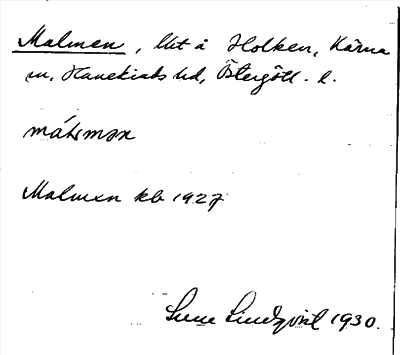 Malmen, lht å Holken, Kärna
sn, Hanekinds hd, Östergötl. l.
Malmen kb 1927
Sune Lindqvist 1930.